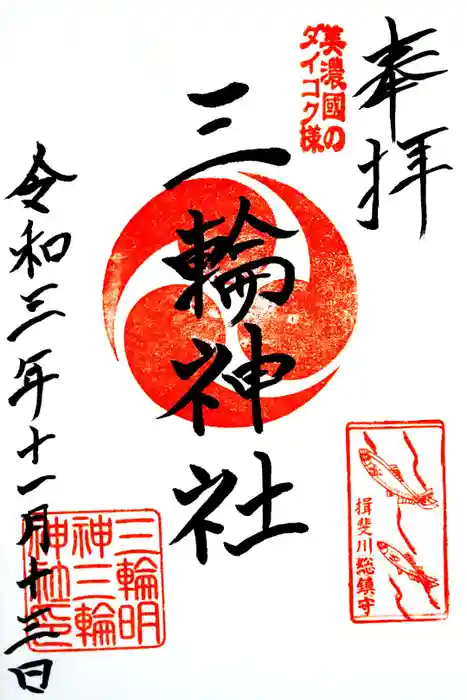 奉拝
美濃國の
ダイコク様
三輪神社
揖斐川総鎮守
三輪明
神三輪
神社印
令和三年十一月十三日